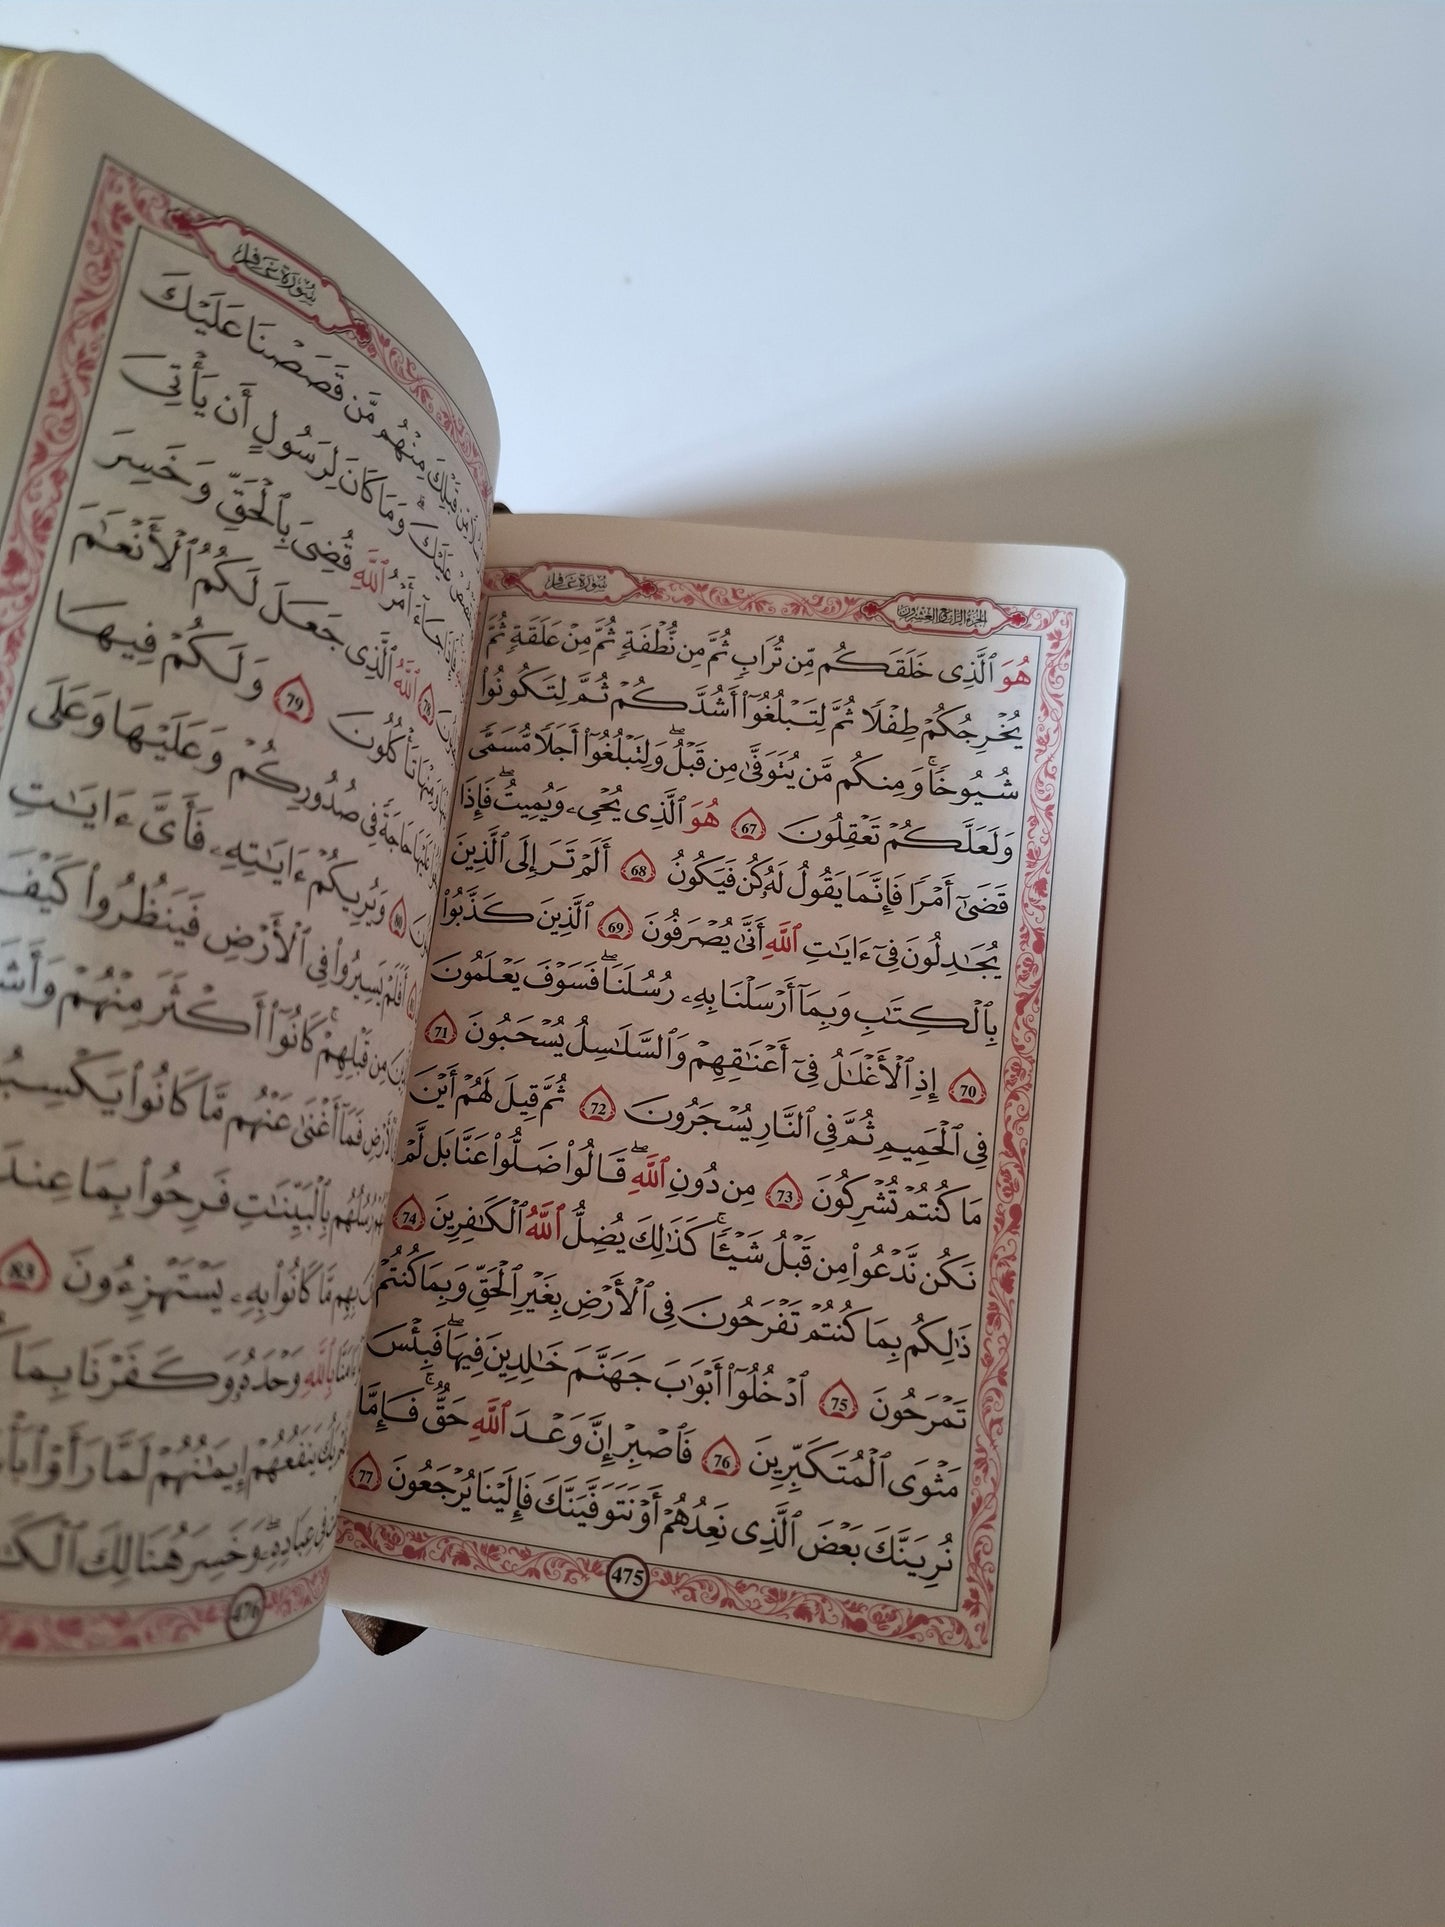 الجزء الرابع والعشرون
سُورَة غَافِر
هُوَ ٱلَّذِى خَلَقَكُم مِّن تُرَابٍ ثُمَّ مِن نُّطْفَةٍ ثُمَّ مِنْ عَلَقَةٍ ثُمَّ
يُخْرِجُكُمْ طِفْلًا ثُمَّ لِتَبْلُغُوٓا۟ أَشُدَّكُمْ ثُمَّ لِتَكُونُوا۟
شُيُوخًا ۚ وَمِنكُم مَّن يُتَوَفَّىٰ مِن قَبْلُ ۖ وَلِتَبْلُغُوٓا۟ أَجَلًا مُّسَمًّى
وَلَعَلَّكُمْ تَعْقِلُونَ 67 هُوَ ٱلَّذِى يُحْىِۦ وَيُمِيتُ ۖ فَإِذَا
قَضَىٰٓ أَمْرًا فَإِنَّمَا يَقُولُ لَهُۥ كُن فَيَكُونُ 68 أَلَمْ تَرَ إِلَى ٱلَّذِينَ
يُجَٰدِلُونَ فِىٓ ءَايَٰتِ ٱللَّهِ أَنَّىٰ يُصْرَفُونَ 69 ٱلَّذِينَ كَذَّبُوا۟
بِٱلْكِتَٰبِ وَبِمَآ أَرْسَلْنَا بِهِۦ رُسُلَنَا ۖ فَسَوْفَ يَعْلَمُونَ
70 إِذِ ٱلْأَغْلَٰلُ فِىٓ أَعْنَٰقِهِمْ وَٱلسَّلَٰسِلُ يُسْحَبُونَ 71
فِى ٱلْحَمِيمِ ثُمَّ فِى ٱلنَّارِ يُسْجَرُونَ 72 ثُمَّ قِيلَ لَهُمْ أَيْنَ
مَا كُنتُمْ تُشْرِكُونَ 73 مِن دُونِ ٱللَّهِ ۖ قَالُوا۟ ضَلُّوا۟ عَنَّا بَل لَّمْ
نَكُن نَّدْعُوا۟ مِن قَبْلُ شَيْـًٔا ۚ كَذَٰلِكَ يُضِلُّ ٱللَّهُ ٱلْكَٰفِرِينَ 74
ذَٰلِكُم بِمَا كُنتُمْ تَفْرَحُونَ فِى ٱلْأَرْضِ بِغَيْرِ ٱلْحَقِّ وَبِمَا كُنتُمْ
تَمْرَحُونَ 75 ٱدْخُلُوٓا۟ أَبْوَٰبَ جَهَنَّمَ خَٰلِدِينَ فِيهَا ۖ فَبِئْسَ
مَثْوَى ٱلْمُتَكَبِّرِينَ 76 فَٱصْبِرْ إِنَّ وَعْدَ ٱللَّهِ حَقٌّ ۚ فَإِمَّا
نُرِيَنَّكَ بَعْضَ ٱلَّذِى نَعِدُهُمْ أَوْ نَتَوَفَّيَنَّكَ فَإِلَيْنَا يُرْجَعُونَ 77
475
سُورَة غَافِر
قَبْلِكَ مِنْهُم مَّن قَصَصْنَا عَلَيْكَ
عَلَيْكَ ۗ وَمَا كَانَ لِرَسُولٍ أَن يَأْتِىَ
جَآءَ أَمْرُ ٱللَّهِ قُضِىَ بِٱلْحَقِّ وَخَسِرَ
78 ٱللَّهُ ٱلَّذِى جَعَلَ لَكُمُ ٱلْأَنْعَٰمَ
وَمِنْهَا تَأْكُلُونَ 79 وَلَكُمْ فِيهَا
عَلَيْهَا حَاجَةً فِى صُدُورِكُمْ وَعَلَيْهَا وَعَلَى
80 وَيُرِيكُمْ ءَايَٰتِهِۦ فَأَىَّ ءَايَٰتِ
أَفَلَمْ يَسِيرُوا۟ فِى ٱلْأَرْضِ فَيَنظُرُوا۟ كَيْفَ
مِن قَبْلِهِمْ ۚ كَانُوٓا۟ أَكْثَرَ مِنْهُمْ
ٱلْأَرْضِ فَمَآ أَغْنَىٰ عَنْهُم مَّا كَانُوا۟
رُسُلُهُم بِٱلْبَيِّنَٰتِ فَرِحُوا۟ بِمَا عِندَ
بِهِم مَّا كَانُوا۟ بِهِۦ يَسْتَهْزِءُونَ 83
ءَامَنَّا بِٱللَّهِ وَحْدَهُۥ وَكَفَرْنَا بِمَا
يَنفَعُهُمْ إِيمَٰنُهُمْ لَمَّا رَأَوْا۟
فِى عِبَادِهِۦ ۖ وَخَسِرَ هُنَالِكَ
476